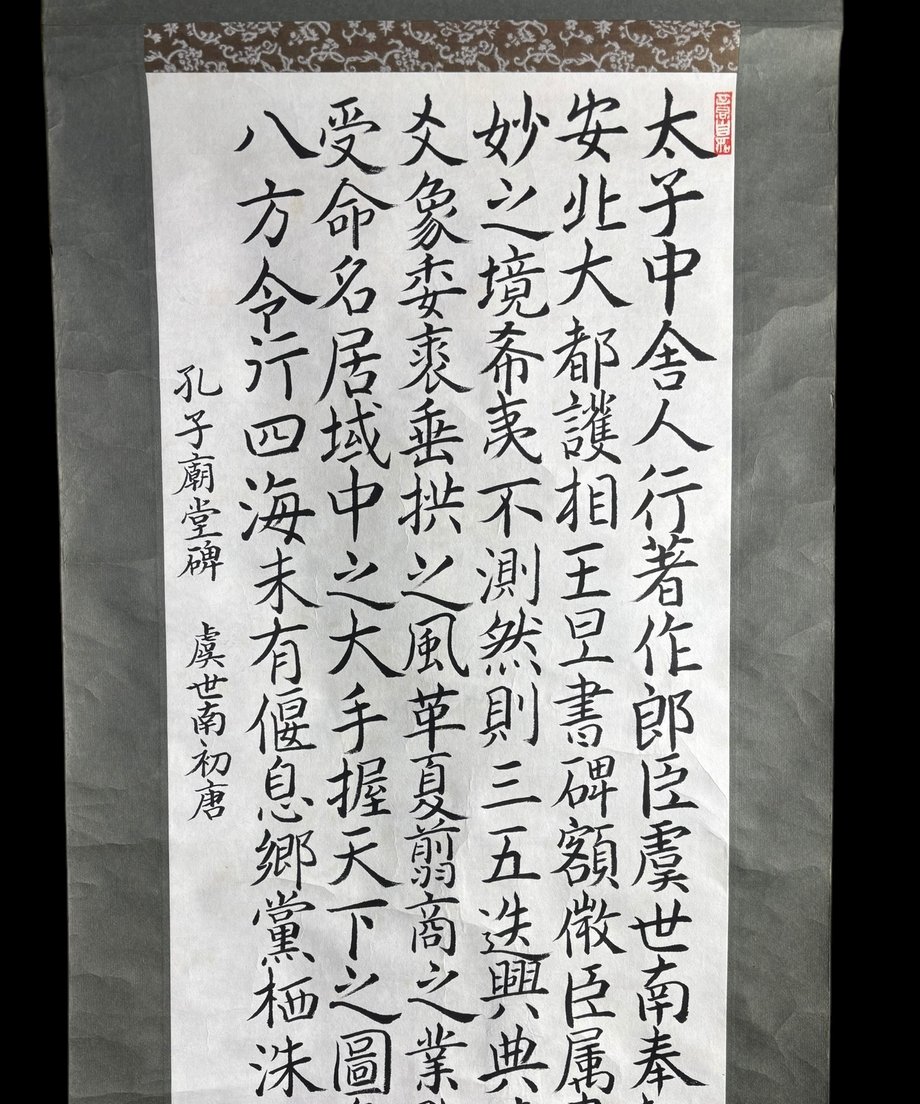 太子中舎人行著作郎臣虞世南奉
安北大都護相王旦書碑額微臣属
妙之境希夷不測然則三五迭興典
爻象委裘垂拱之風革夏翦商之業
受命名居域中之大手握天下之圖
八方令行四海未有偃息鄉黨栖洙
孔子廟堂碑 虞世南初唐